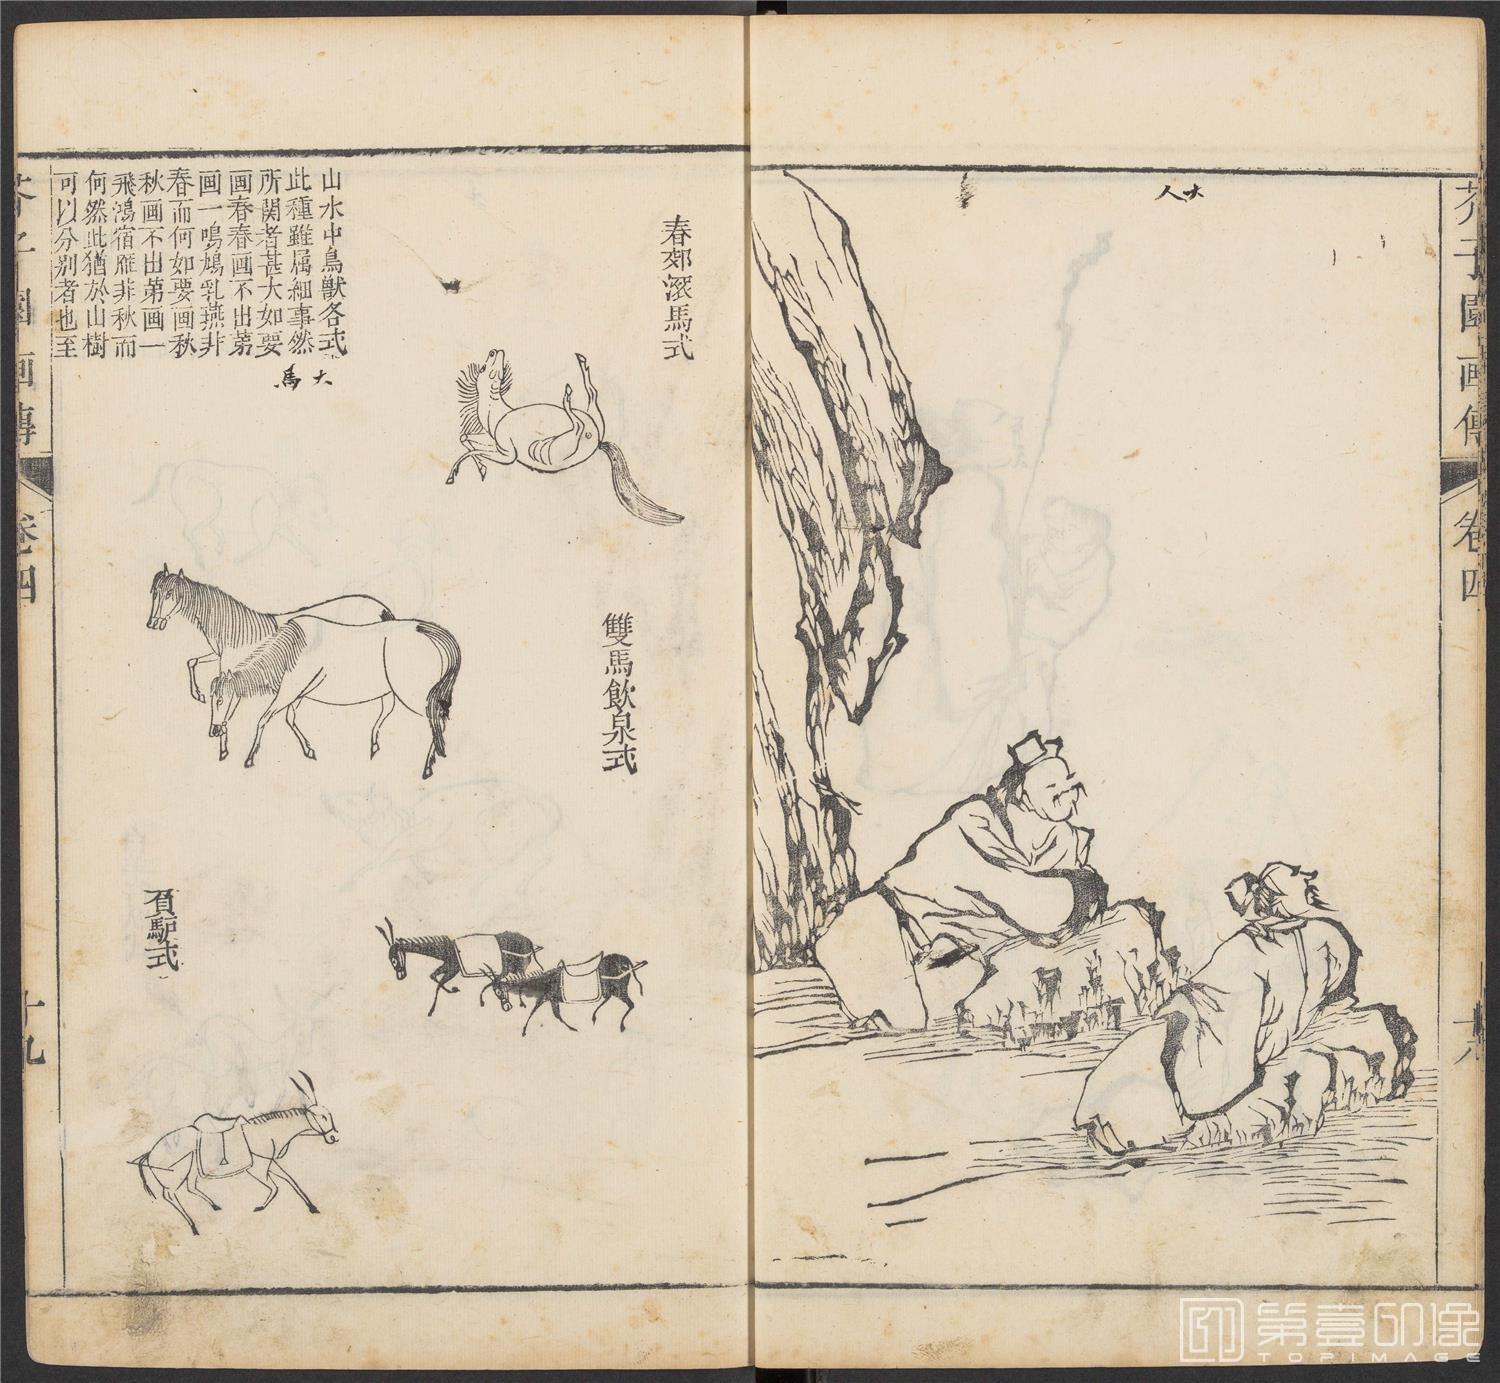 芥子園画傳
卷四
十八
大人
春郊滾馬式
雙馬飲泉式
負馿式
山水中鳥獸各式
此種雖属細事然
所関者甚大如要
画春春画不出苐
画一鳴鳩乳燕非
春而何如要画秋
秋画不出苐画一
飛鴻宿雁非秋而
何然此猶於山樹
可以分别者也至
大馬
芥子園画傳
卷四
十九
第壹印象
TOPIMAGE